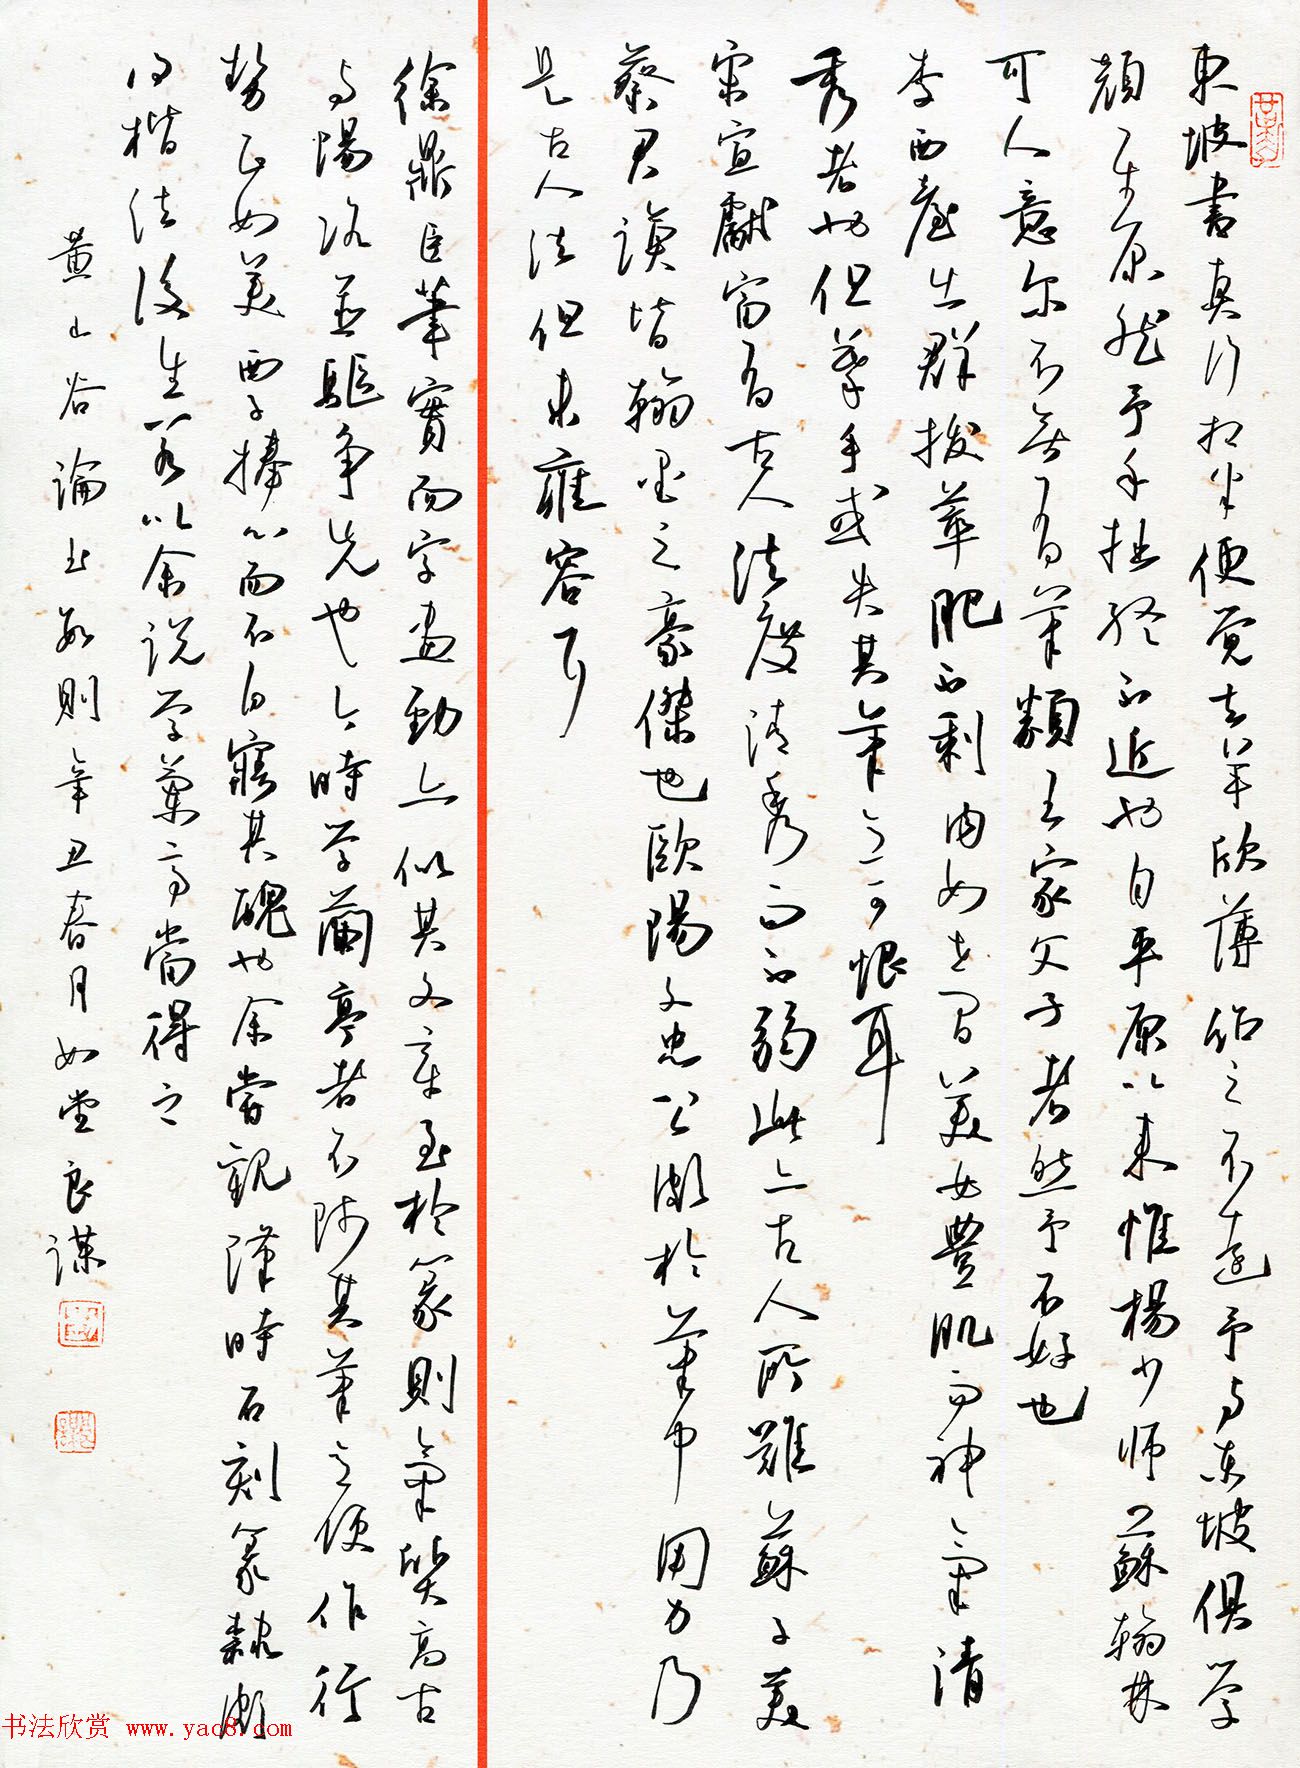 東坡書真行相半便覺去羊欣薄紹之不遠予与東坡俱學
顔平原然予手拙終不近也自平原以來惟楊少師蘇翰林
可人意尔不無有筆類王家父子者然予不好也
李西臺出群拔萃肥不剩肉如世間美女豐肌而神氣清
秀者也但摹手或失其筆意可恨耳
宋宣獻富有古人法度清秀而不弱此亦古人所難蘇子美
蔡君謨皆翰墨之豪傑也歐陽文忠公頗於筆中用力乃
是古人法但未雍容耳
徐鼎臣筆實而字畫勁亦似其文章至於篆則氣質高古
与陽冰並驅争先也今時學蘭亭者不師其筆意便作行
勢正如美西子捧心而不自寤其醜也余嘗觀漢時石刻篆隸頗
得楷法後生若以余說學蘭亭當得之
黄山谷論書數則辛丑春月如堂良謀
书法欣赏 www.yac8.com